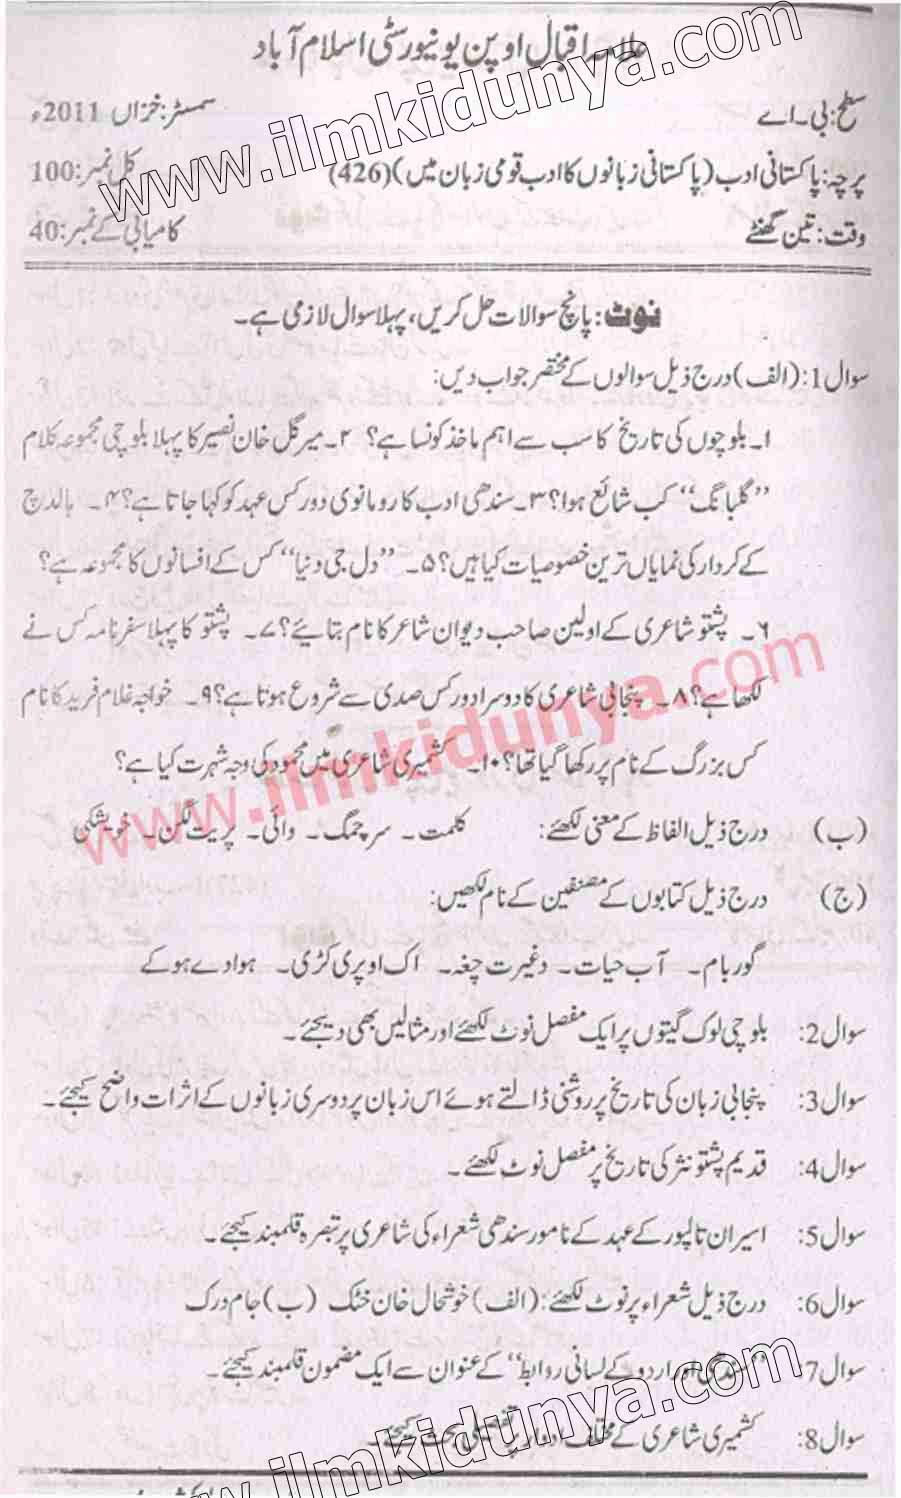 علامہ اقبال اوپن یونیورسٹی اسلام آباد
سطح: بی۔اے سمسٹر: خزاں 2011ء
پرچہ: پاکستانی ادب (پاکستانی زبانوں کا ادب قومی زبان میں) (426) کل نمبر: 100
وقت: تین گھنٹے کامیابی کے نمبر: 40
نوٹ: پانچ سوالات حل کریں، پہلا سوال لازمی ہے۔
سوال 1: (الف) درج ذیل سوالوں کے مختصر جواب دیں:
۱۔ بلوچوں کی تاریخ کا سب سے اہم ماخذ کونسا ہے؟ ۲۔ میر گل خان نصیر کا پہلا بلوچی مجموعہ کلام
”گلبانگ“ کب شائع ہوا؟ ۳۔ سندھی ادب کا رومانوی دور کس عہد کو کہا جاتا ہے؟ ۴۔ ہالدچ
کے کردار کی نمایاں ترین خصوصیات کیا ہیں؟ ۵۔ ”دل جی دنیا“ کس کے افسانوں کا مجموعہ ہے؟
۶۔ پشتو شاعری کے اولین صاحب دیوان شاعر کا نام بتائیے؟ ۷۔ پشتو کا پہلا سفرنامہ کس نے
لکھا ہے؟ ۸۔ پنجابی شاعری کا دوسرا دور کس صدی سے شروع ہوتا ہے؟ ۹۔ خواجہ غلام فرید کا نام
کس بزرگ کے نام پر رکھا گیا تھا؟ ۱۰۔ کشمیری شاعری میں محمود کی وجہ شہرت کیا ہے؟
(ب) درج ذیل الفاظ کے معنی لکھئے: کلمت۔ سرچمگ۔ وائی۔ پریت لگن۔ خویشکی
(ج) درج ذیل کتابوں کے مصنفین کے نام لکھیں:
گوربام۔ آب حیات۔ دغیرت چغہ۔ اک اوپری کڑی۔ ہوا دے ہوکے
سوال 2: بلوچی لوک گیتوں پر ایک مفصل نوٹ لکھئے اور مثالیں بھی دیجئے۔
سوال 3: پنجابی زبان کی تاریخ پر روشنی ڈالتے ہوئے اس زبان پر دوسری زبانوں کے اثرات واضح کیجئے۔
سوال 4: قدیم پشتو نثر کی تاریخ پر مفصل نوٹ لکھئے۔
سوال 5: اسیران تالپور کے عہد کے نامور سندھی شعراء کی شاعری پر تبصرہ قلمبند کیجئے۔
سوال 6: درج ذیل شعراء پر نوٹ لکھئے: (الف) خوشحال خان خٹک (ب) جام درک
سوال 7: ”سندھی اور اردو کے لسانی روابط“ کے عنوان سے ایک مضمون قلمبند کیجئے۔
سوال 8: کشمیری شاعری کے مختلف ادوار پر تفصیلی بحث کیجئے۔
www.ilmkidunya.com
www.ilmkidunya.com
www.ilmkidunya.com